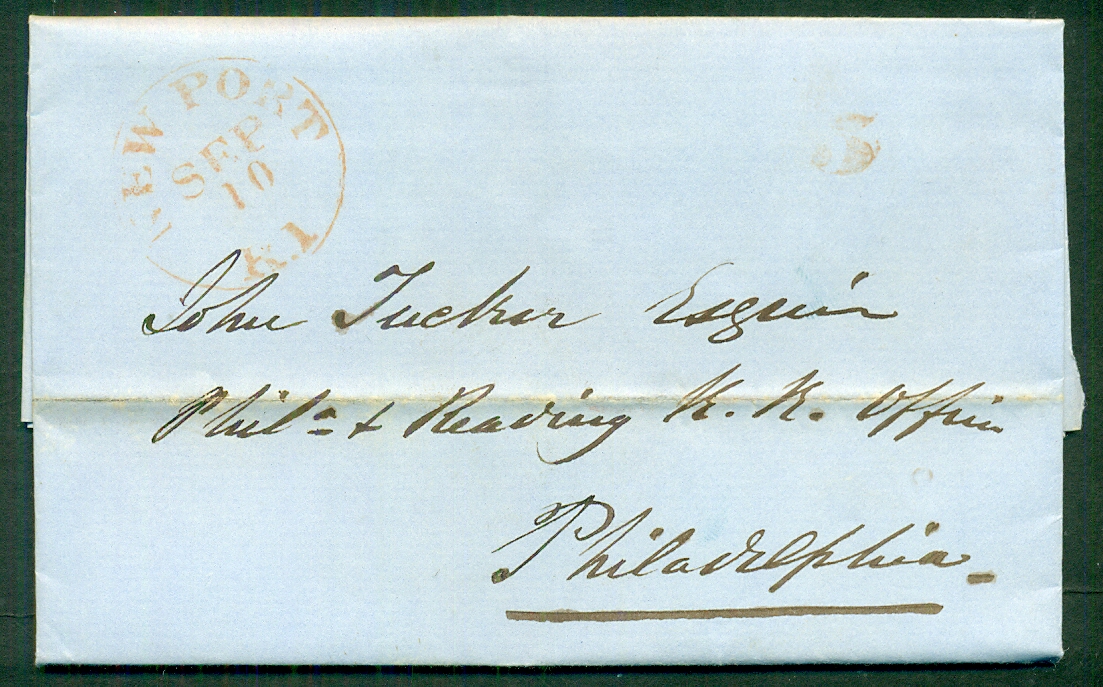 NEW PORT
SEP
10
R.I
5
John Tucker Esquire
Phila & Reading R. R. Office
Philadelphia